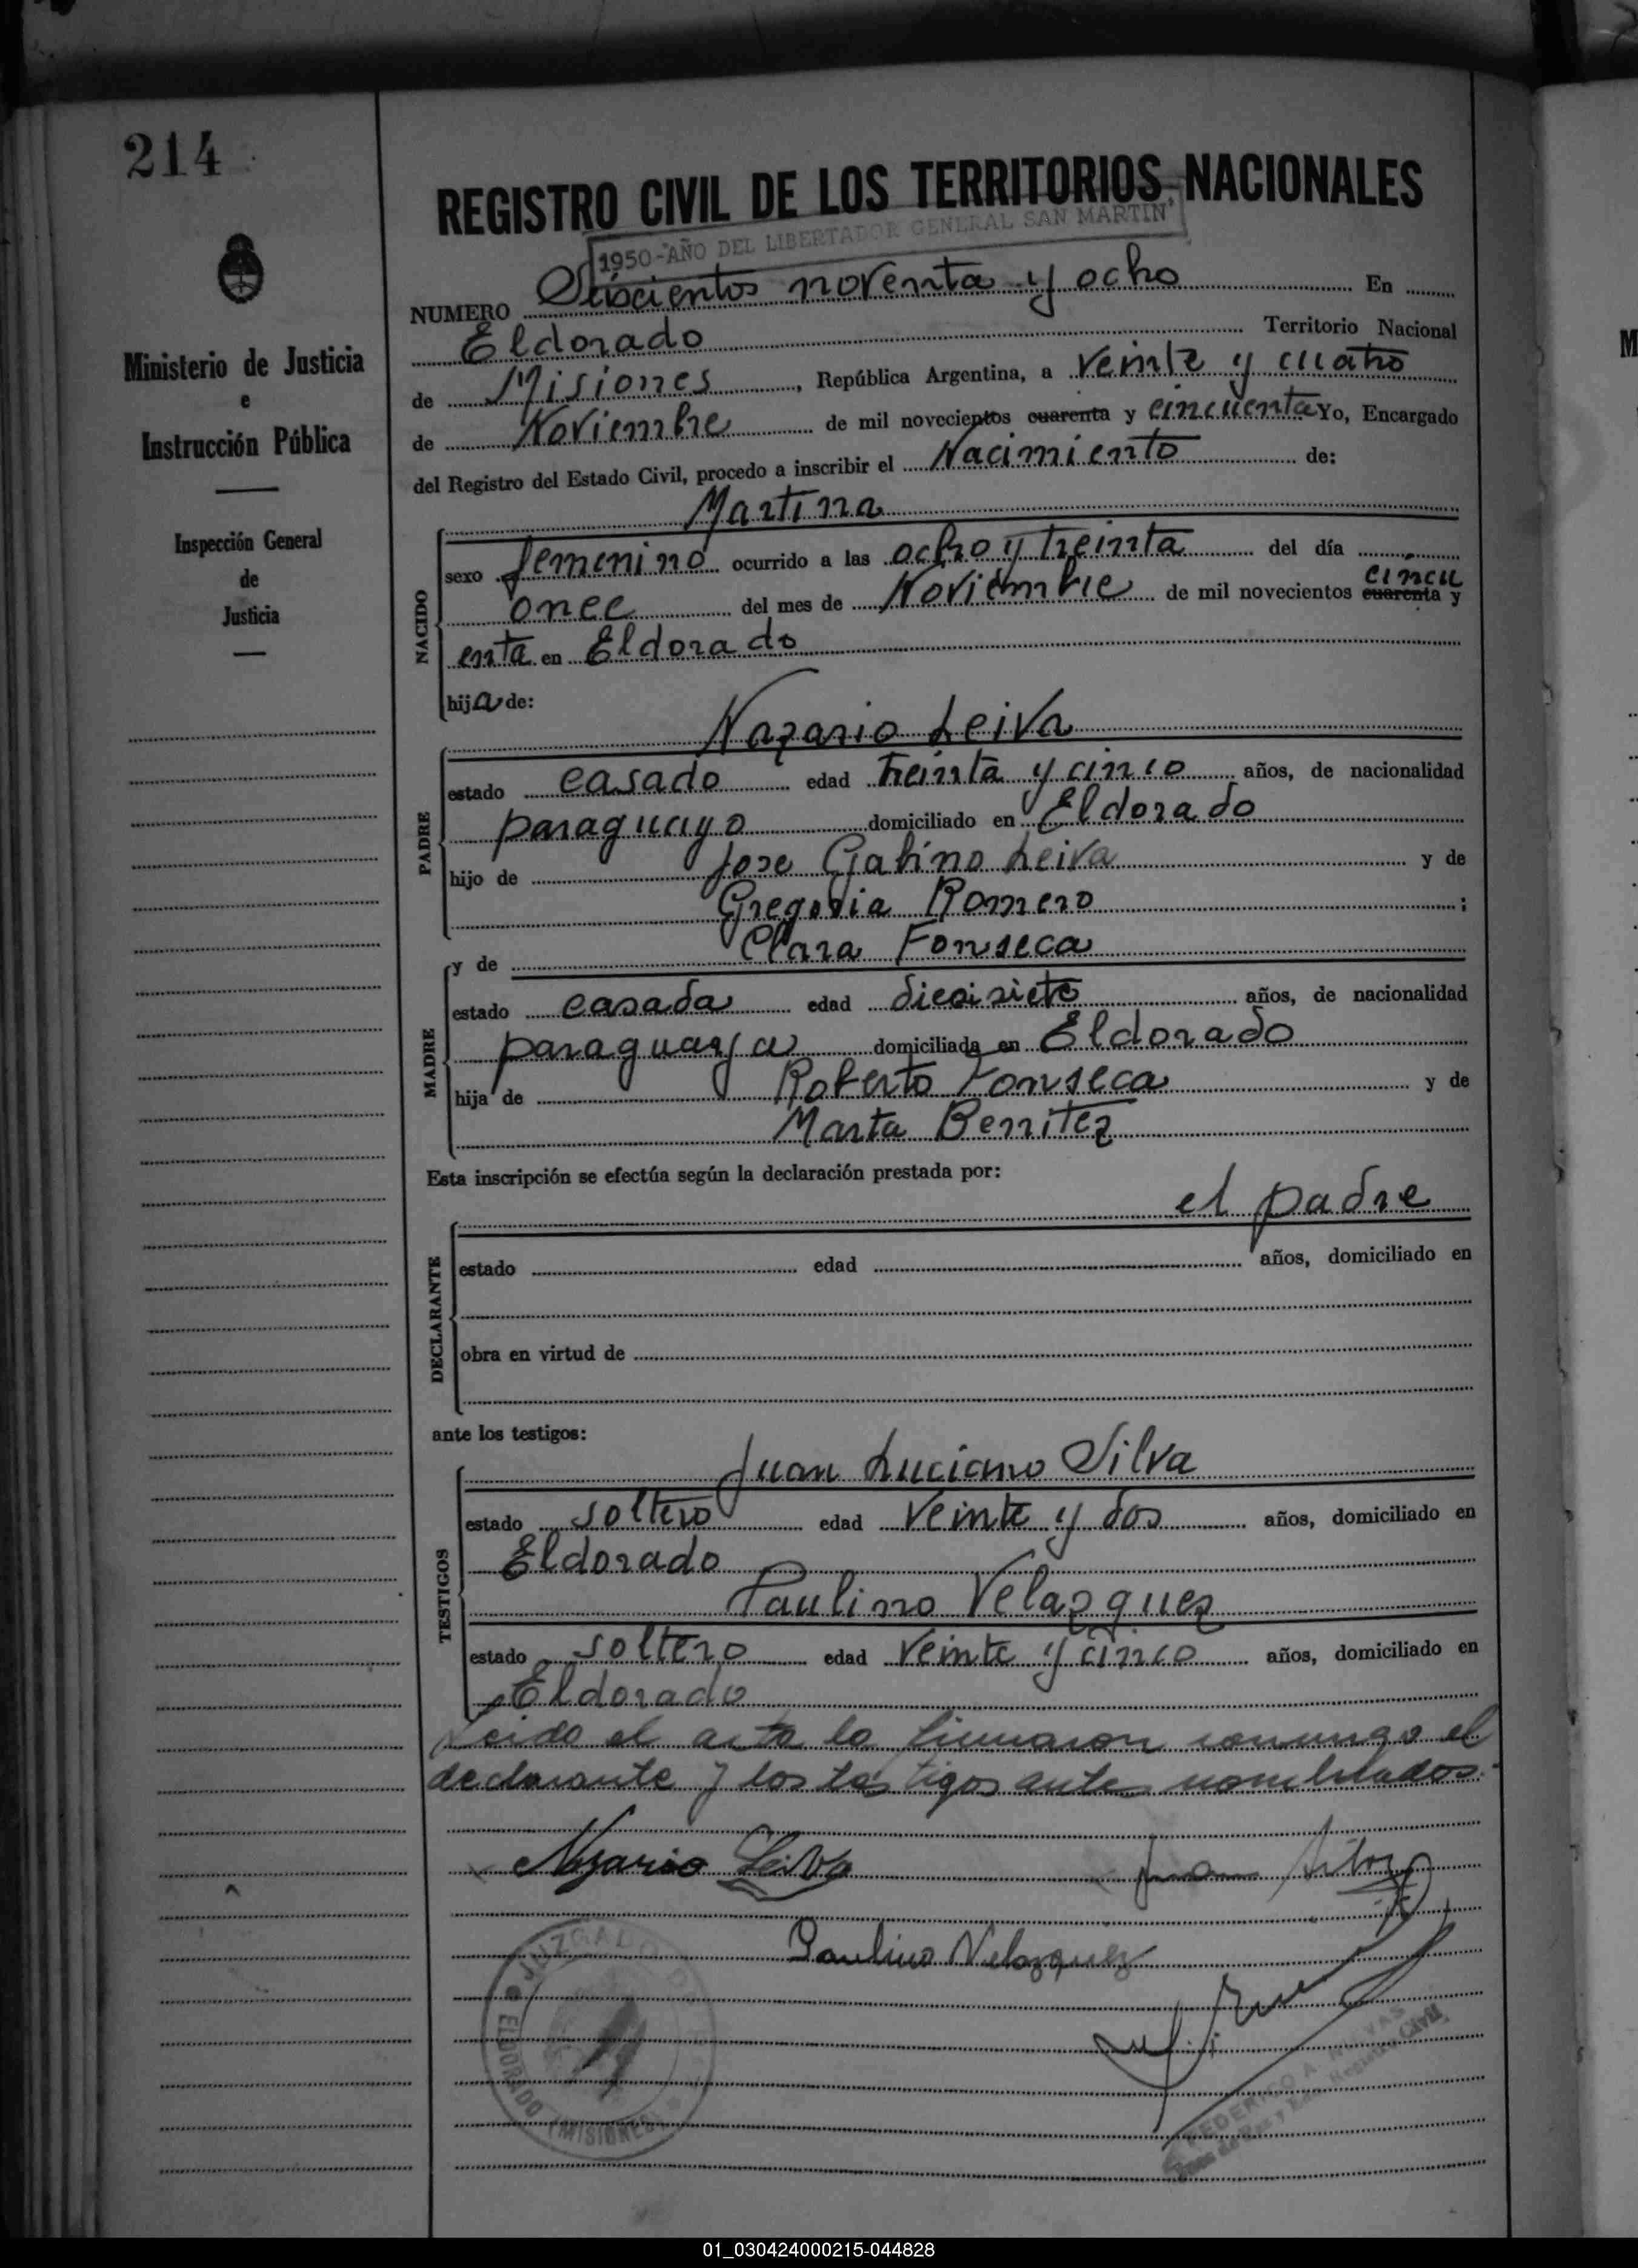 214
REGISTRO CIVIL DE LOS TERRITORIOS NACIONALES
1950-"AÑO DEL LIBERTADOR GENERAL SAN MARTIN"
NUMERO Seiscientos noventa y ocho En
Eldorado Territorio Nacional
de Misiones, República Argentina, a veinte y cuatro
de Noviembre de mil novecientos cuarenta y cincuenta Yo, Encargado
del Registro del Estado Civil, procedo a inscribir el Nacimiento de:
Ministerio de Justicia
e
Instrucción Pública
Inspección General
de
Justicia
NACIDO
Martina
sexo femenino ocurrido a las ocho y treinta del día
once del mes de Noviembre de mil novecientos cuarenta y cincu
enta en Eldorado
hija de:
PADRE
Nazario Leiva
estado casado edad treinta y cinco años, de nacionalidad
paraguayo domiciliado en Eldorado
hijo de Jose Gabino Leiva y de
Gregoria Romero ;
MADRE
y de Clara Fonseca
estado casada edad diecisiete años, de nacionalidad
paraguaya domiciliada en Eldorado
hija de Roberto Fonseca y de
Marta Benitez
Esta inscripción se efectúa según la declaración prestada por:
el padre
DECLARANTE
estado edad años, domiciliado en
obra en virtud de
ante los testigos:
TESTIGOS
Juan Luciano Silva
estado soltero edad veinte y dos años, domiciliado en
Eldorado
Paulino Velazquez
estado soltero edad veinte y cinco años, domiciliado en
Eldorado
Leida el acta la firmaron conmigo el
declarante y los testigos antes nombrados.
Nazario Leiva Juan Silva
Paulino Velazquez
JUZGADO DE PAZ
ELDORADO (MISIONES)
FEDERICO A. NAVAS
Juez de Paz y Enc. Registro Civil
01_030424000215-044828